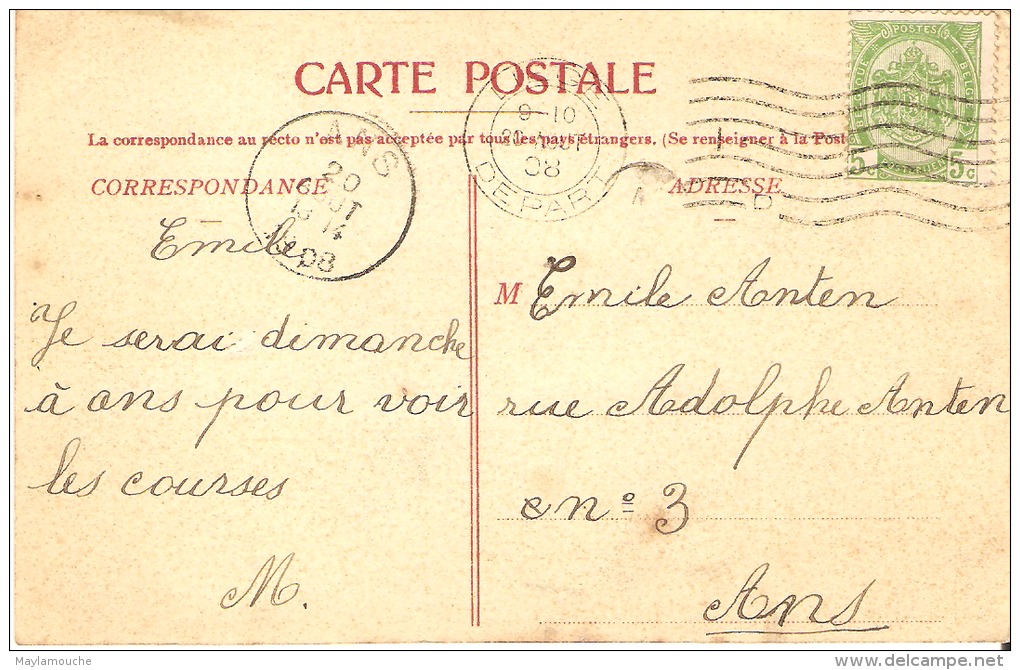 CARTE POSTALE
La correspondance au recto n'est pas acceptée par tous les pays étrangers. (Se renseigner à la Post
CORRESPONDANCE
ADRESSE
POSTES
5c 5c
ANS
20
AOUT
14
08
9-10
AOUT
08
DEPART
Emile
Je serai dimanche
à ans pour voir
les courses
M.
M Emile Anten
rue Adolphe Anten
n° 3
Ans
Maylamouche
delcampe.net